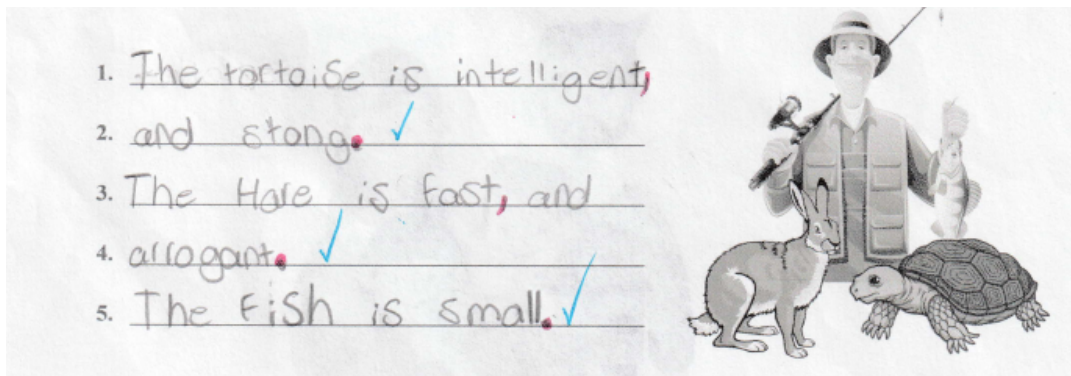 1. The tortoise is intelligent,
2. and stong.
3. The Hare is fast, and
4. arrogant.
5. The Fish is small.